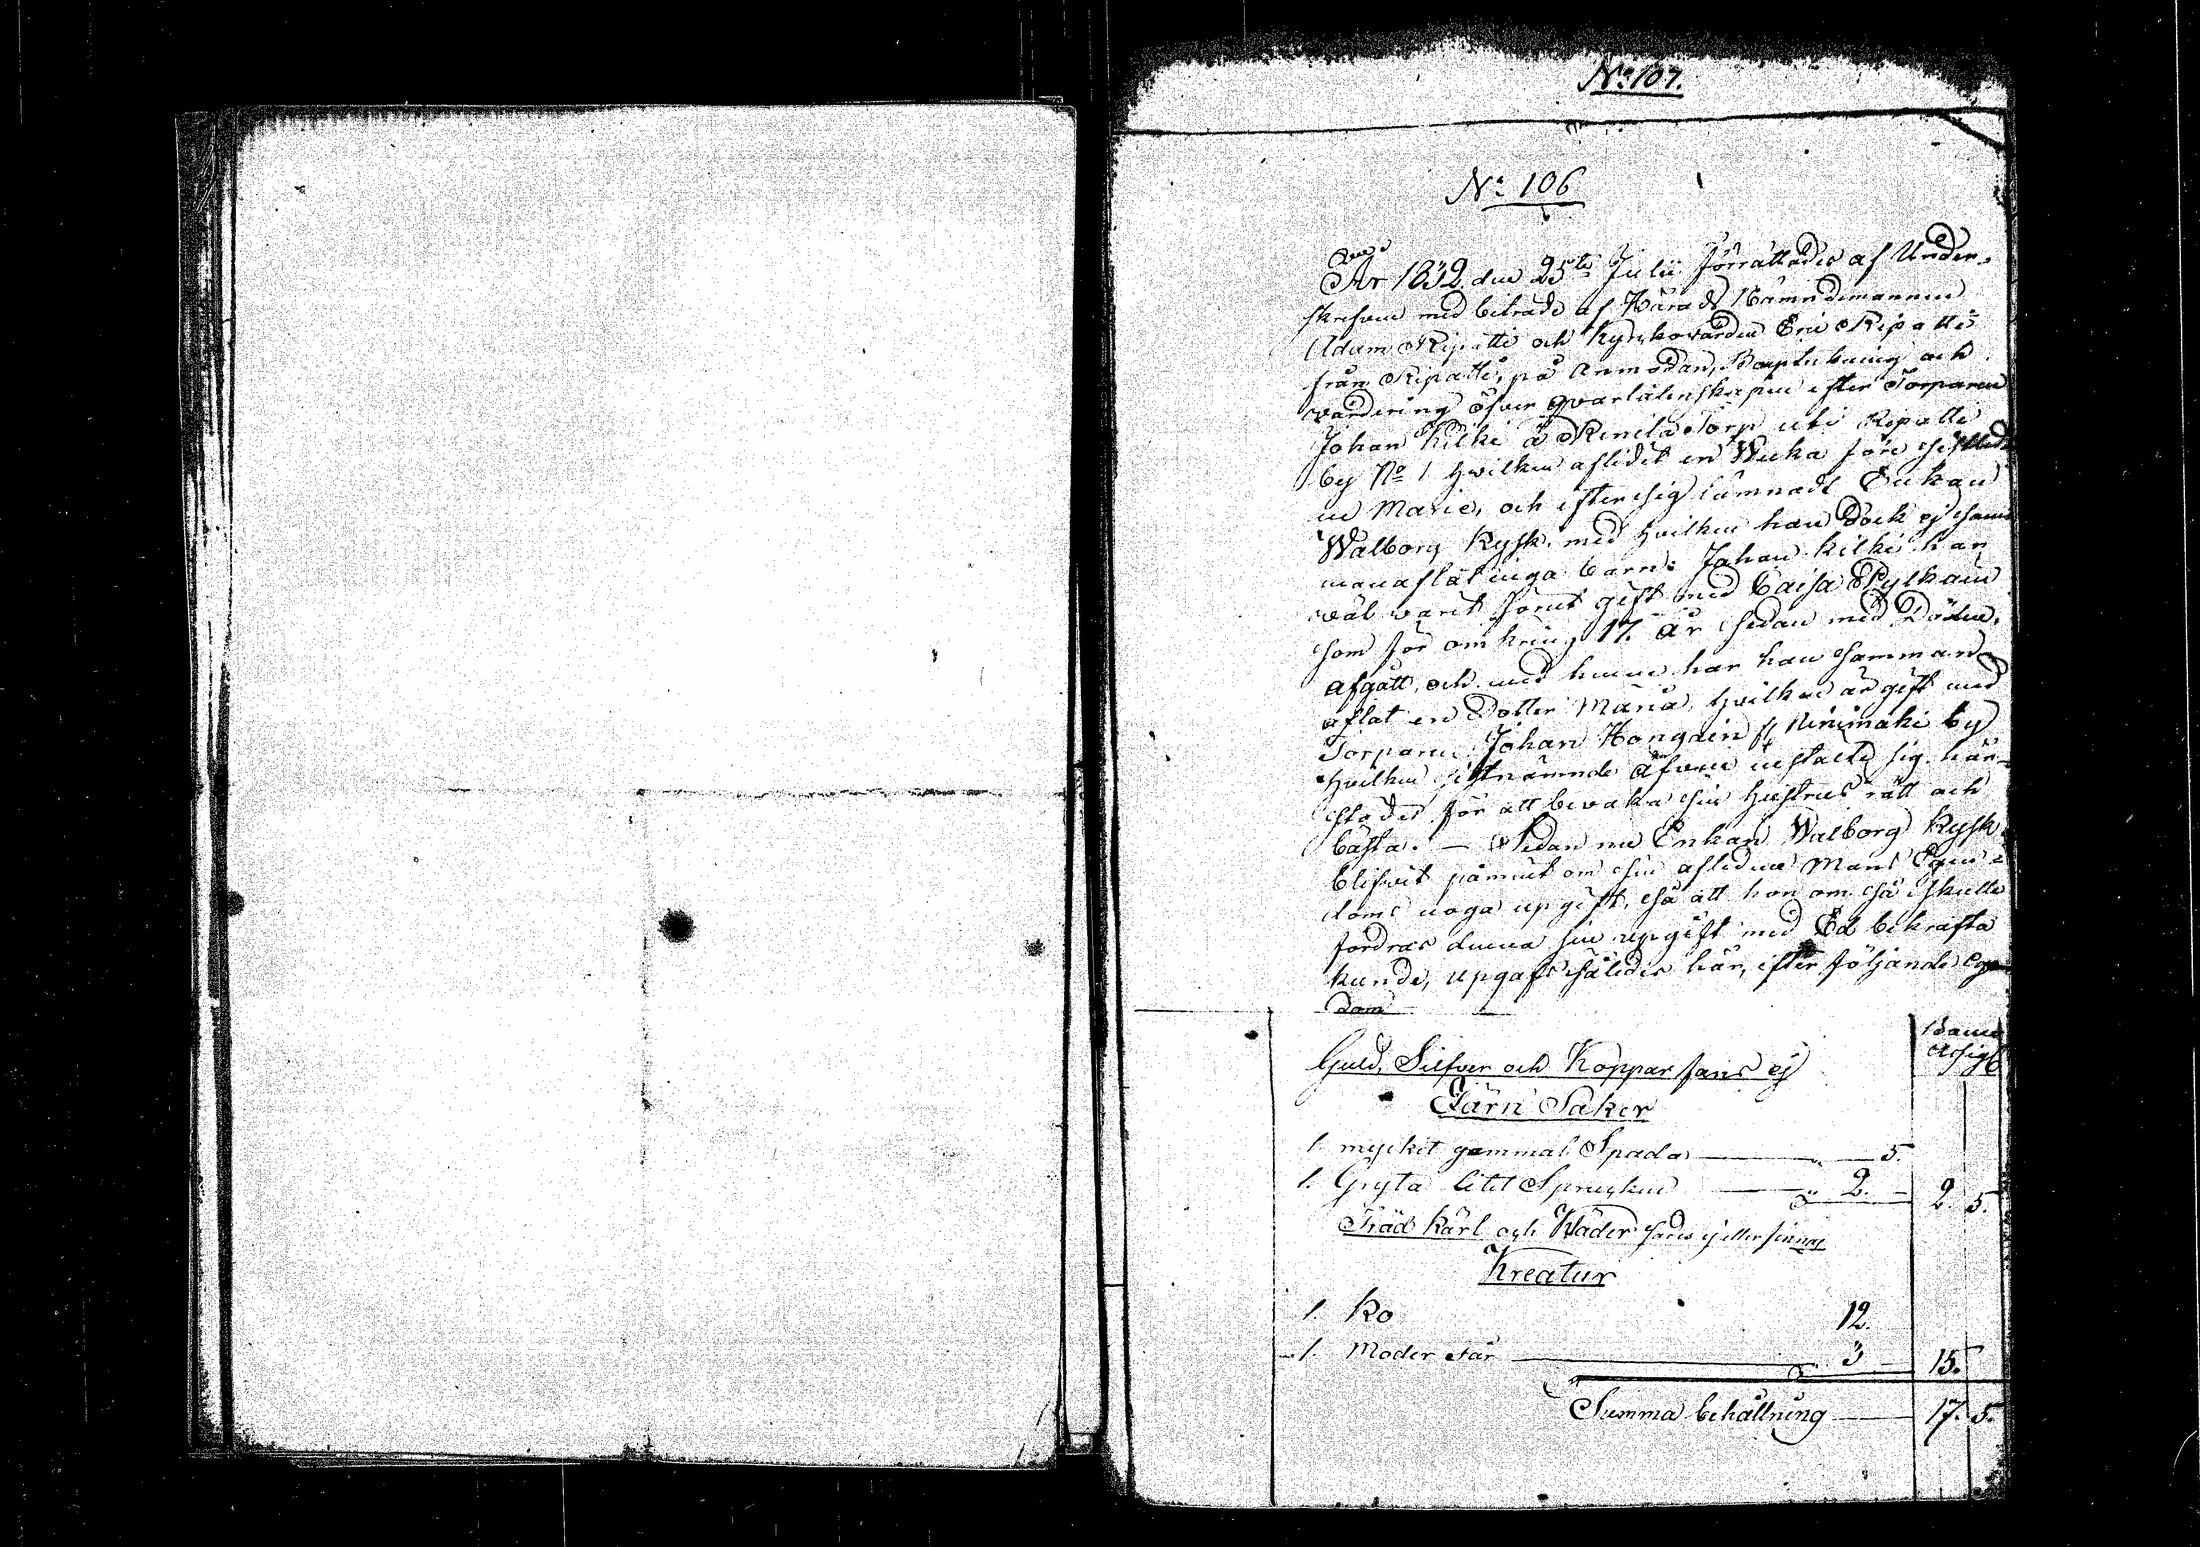 No 107.
No 106
År 1832 den 25te Julii förrättades af Under-
skrefven med biträde af Härads Nämndemannen
Adam Ripatti och Kyrkovärden Eric Ripatti
från Ripatti, på anmodan, Bouptekning och
värdering öfver qvarlåtenskapen efter Torparen
Johan Kilki å Torp uti Ripatti
by No 1 hvilken aflidit en Wecka före
Marie, och efter sig lämnadt Enkan
Walborg Rysk, med hvilken han dock ej sam
manaflat inga barn. Johan Kilki har
väl varit förut gift med Caisa Pylkäin
som för omkring 17. år sedan med Döden
afgått, och med henne har han samman
aflat en Dotter Maria, hvilken är gift med
Torparen Johan Hongain fr Niinimäki by
hvilken sistnämnde äfven instälte sig här-
städes för att bevaka sin hustrus rätt och
bästa. — Sedan nu Enkan Walborg Rysk
blifvit påmint om sin aflidne Mans Egen-
doms noga upgift, så att hon om så skulle
fordras denna sin upgift med Ed bekräfta
kunde, upgafs således här, efter följande Egen
dom
Banco
Assig
Guld, Silfver och Koppar fans ej
Järn Saker
1. mycket gammal Spada — " — 5.
1. Gryta litet Sprucken — " 2. — 2. 5.
Träd Kärl och Kläder fans ej eller finnas
Kreatur
1. Ko 12.
1. Moder Får — 3 — 15.
Summa behållning — 17. 5.